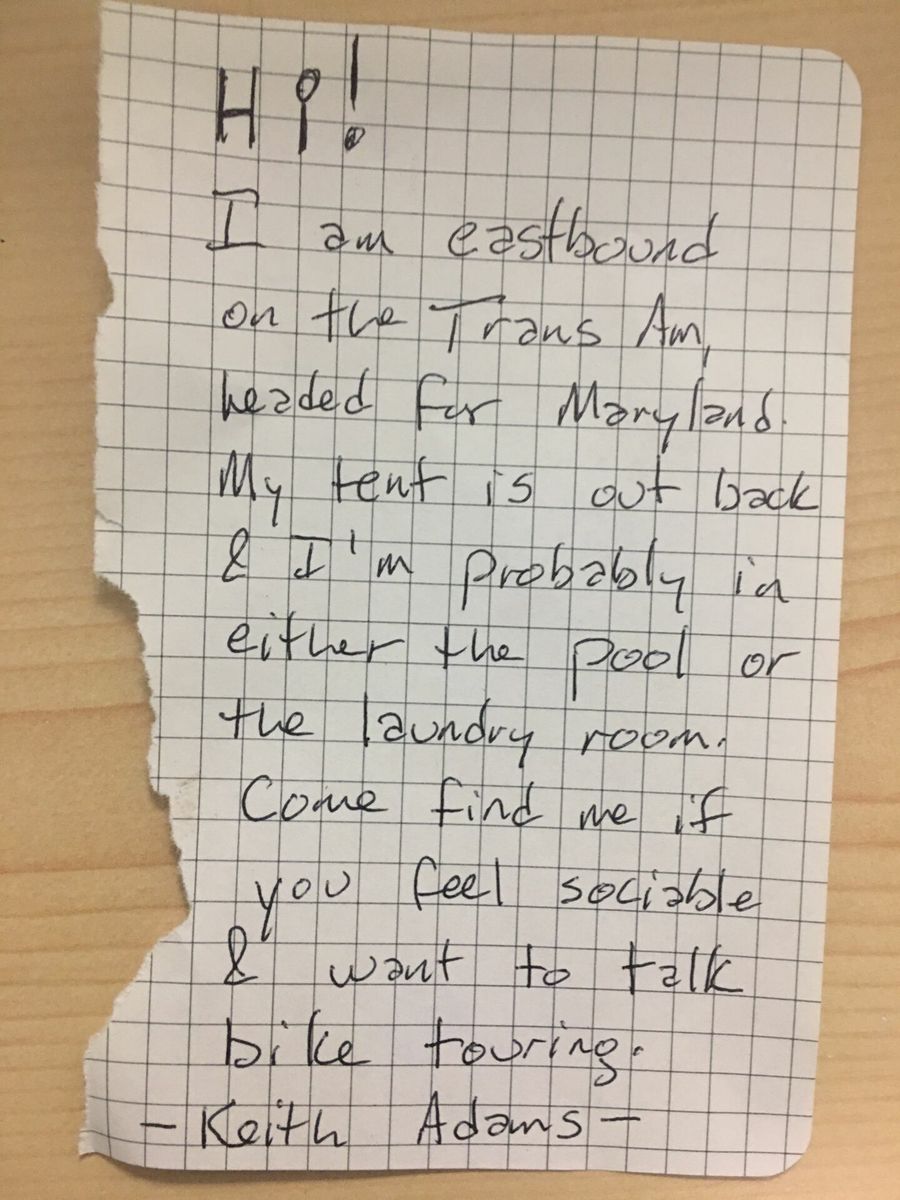 Hi!
I am eastbound
on the Trans Am,
headed for Maryland.
My tent is out back
& I'm probably in
either the pool or
the laundry room.
Come find me if
you feel sociable
& want to talk
bike touring.
- Keith Adams -